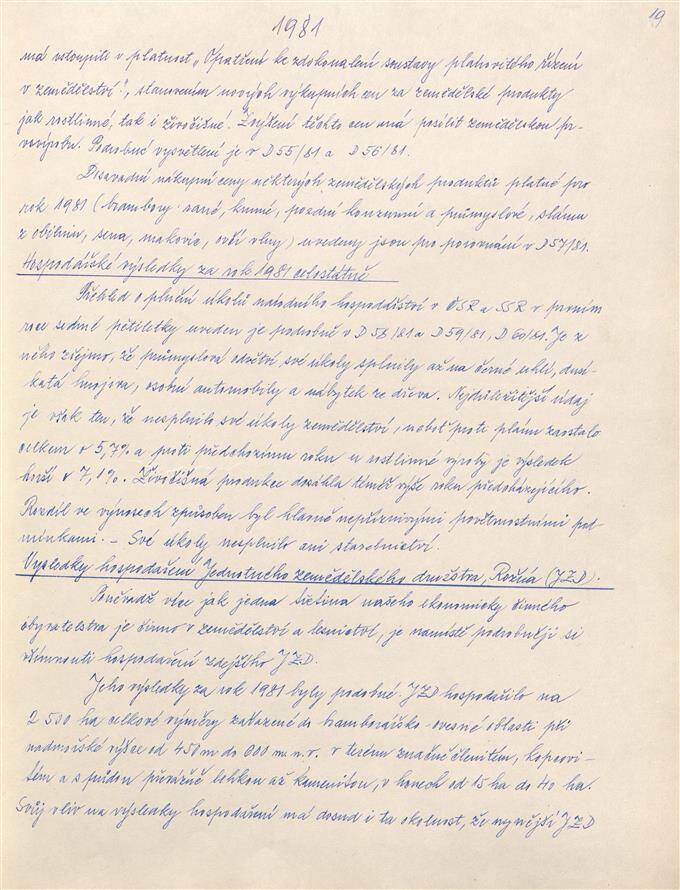 19
1981
má vstoupiti v platnost „Opatření ke zdokonalení soustavy plánovitého řízení
v zemědělství“, stanovením nových výkupních cen za zemědělské produkty
jak rostlinné, tak i živočišné. Zvýšení těchto cen má posílit zemědělskou pr-
vovýrobu. Podrobné vysvětlení je v D 55/81 a D 56/81.
Dosavadní nákupní ceny některých zemědělských produktů platné pro
rok 1981 (brambory rané, krmné, pozdní konzumní a průmyslové, sláma
z obilnin, sena, makovic, ovčí vlny) uvedeny jsou pro porovnání v D 57/81.
Hospodářské výsledky za rok 1981 celostátně
Přehled o plnění úkolů národního hospodářství v ČSR a SSR v prvním
roce sedmé pětiletky uveden je podrobně v D 58/81 a D 59/81, D 60/81. Je z
něho zřejmo, že průmyslová odvětví své úkoly splnily až na černé uhlí, dusí-
katá hnojiva, osobní automobily a nábytek ze dřeva. Nejdůležitější údaj
je však ten, že nesplnilo své úkoly zemědělství, neboť proti plánu zaostalo
celkem o 5,7% a proti předchozímu roku u rostlinné výroby je výsledek
horší o 7,1%. Živočišná produkce dosáhla téměř výše roku předcházejícího.
Rozdíl ve výnosech způsoben byl hlavně nepříznivými povětrnostními pod-
mínkami. - Své úkoly nesplnilo ani stavebnictví.
Výsledky hospodaření Jednotného zemědělského družstva, Rožná (JZD).
Poněvadž více jak jedna třetina našeho ekonomicky činného
obyvatelstva je činno v zemědělství a lesnictví, je namístě podrobněji si
všimnouti hospodaření zdejšího JZD.
Jeho výsledky za rok 1981 byly podobné. JZD hospodařilo na
2 500 ha celkové výměry zařazené do bramborářsko-ovesné oblasti při
nadmořské výšce od 450 m do 600 m. n. v. v terénu značně členitém, kopcovi-
tém a s půdou převážně lehkou až kamenitou, v honech od 15 ha do 40 ha.
Svůj vliv na výsledky hospodaření má dosud i ta okolnost, že nynější JZD